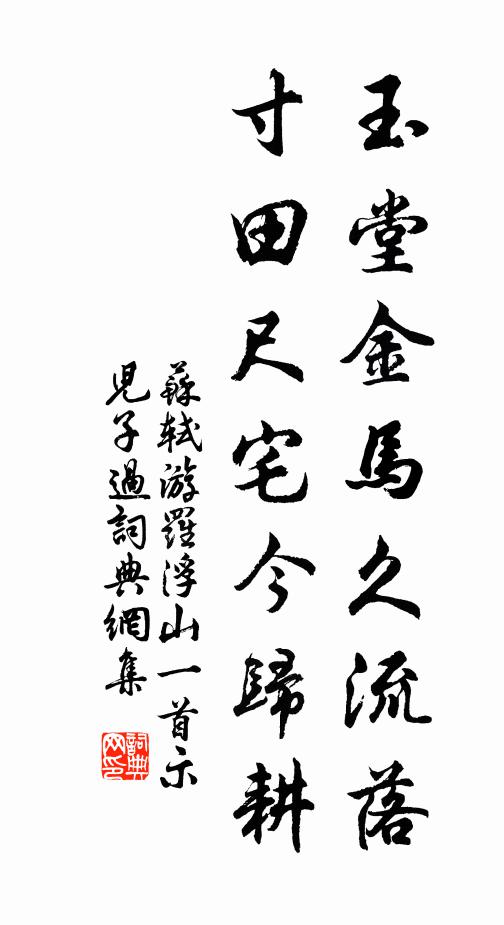 玉堂金馬久流落
寸田尺宅今歸耕
蘇軾游羅浮山一首示
兒子過詞典網集
詞典
网印